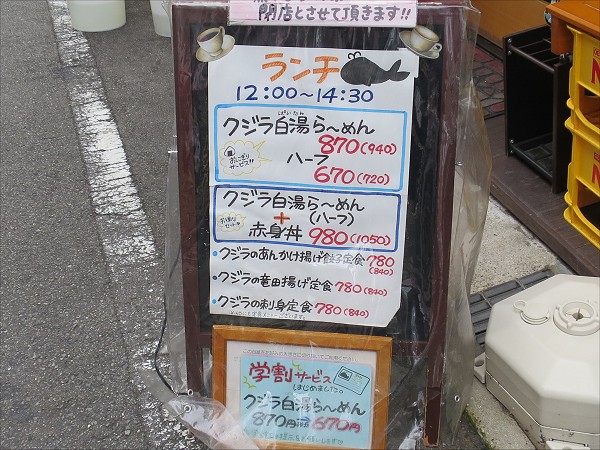 閉店とさせて頂きます!!
ランチ
12:00〜14:30
クジラ白湯ら〜めん
ぱいたん
870(940)
おにぎり
サービス!!
ハーフ
670(720)
クジラ白湯ら〜めん
+(ハーフ)
お得な
セット
赤身丼 980(1050)
・クジラのあんかけ揚げ餃子定食 780
(840)
・クジラの竜田揚げ定食 780(840)
・クジラの刺身定食 780(840)
学割サービス
はじめました。
クジラ白湯ら〜めん
870円 670円